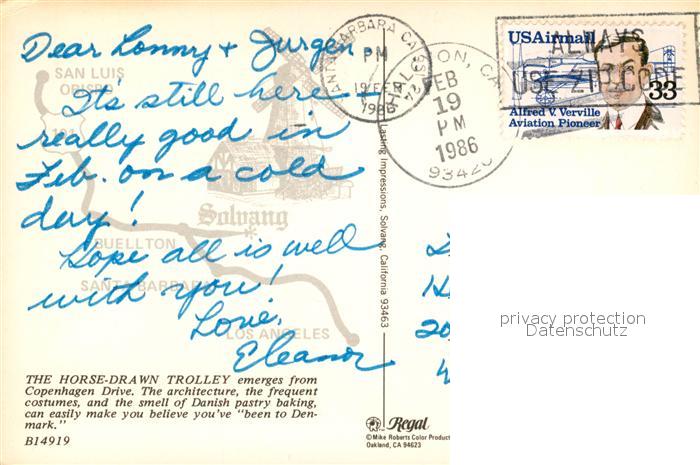 Dear Lonny + Jurgen -
It's still here -
really good in
Feb. on a cold
day!
Hope all is well
with you!
Love,
Eleanor
SAN LUIS
OBISPO
Solvang
BUELLTON
SANTA BARBARA
LOS ANGELES
THE HORSE-DRAWN TROLLEY emerges from
Copenhagen Drive. The architecture, the frequent
costumes, and the smell of Danish pastry baking,
can easily make you believe you've "been to Den-
mark."
B14919
Lasting Impressions, Solvang, California 93463
Regal
©Mike Roberts Color Product
Oakland, CA 94623
SANTA BARBARA CA
PM
19 FEB
1986
FEB
19
PM
1986
93420
ALWAYS
USE ZIP CODE
USAirmail
33
Alfred V. Verville
Aviation Pioneer
20
privacy protection
Datenschutz